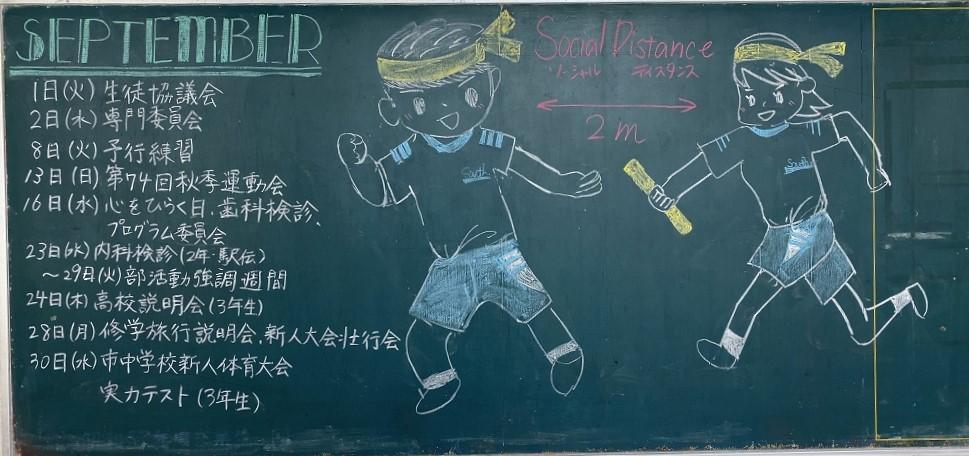 SEPTEMBER
1日(火) 生徒協議会
2日(水) 専門委員会
8日(火) 予行練習
13日(日) 第74回秋季運動会
16日(水) 心をひらく日、歯科検診、
プログラム委員会
23日(水) 内科検診(2年・駅伝)
～29日(火) 部活動強調週間
24日(木) 高校説明会(3年生)
28日(月) 修学旅行説明会、新人大会壮行会
30日(水) 市中学校新人体育大会
実力テスト(3年生)
Social Distance
ソーシャル ディスタンス
2m
South
South